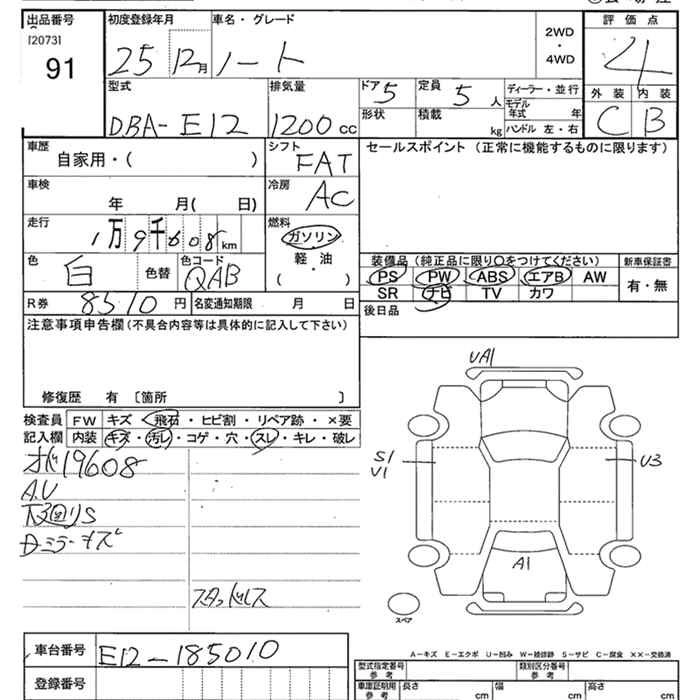 出品番号 初度登録年月 車名・グレード 2WD ・ 4WD 評価点
[2073]
91 25 12月 ノート 4
型式 排気量 ドア 5 定員 5 人 ディーラー・並行 外装 内装
DBA-E12 1200cc 形状 積載 kg モデル年式 年 C B
ハンドル 左・右
車歴 自家用・( ) シフト FAT セールスポイント (正常に機能するものに限ります)
車検 年 月( 日) 冷房 AC
走行 1万9千608km 燃料 ガソリン 軽・油 ( )
色 白 色替 色コード QAB
装備品 (純正品に限り○をつけてください) 新車保証書
PS PW ABS エアB AW 有・無
SR ナビ TV カワ
R券 8510円 名変通知期限 月 日 後日品
注意事項申告欄 (不具合内容等は具体的に記入して下さい)
修復歴 有 〔箇所 〕
検査員 FW キズ・飛石・ヒビ割・リペア跡・×要
記入欄 内装 キズ・汚レ・コゲ・穴・スレ・キレ・破レ
19608
A.U
下回りS
ミラーキズ
スタッドレス
UA1
S1
V1
U3
A1
スペア
A-キズ E-エクボ U-凹み W-補修跡 S-サビ C-腐食 ××-交換済
車台番号 E12-185010
登録番号
型式指定番号 参考 類別区分番号 参考
車庫証明用 参考 長さ cm 幅 cm 高さ cm